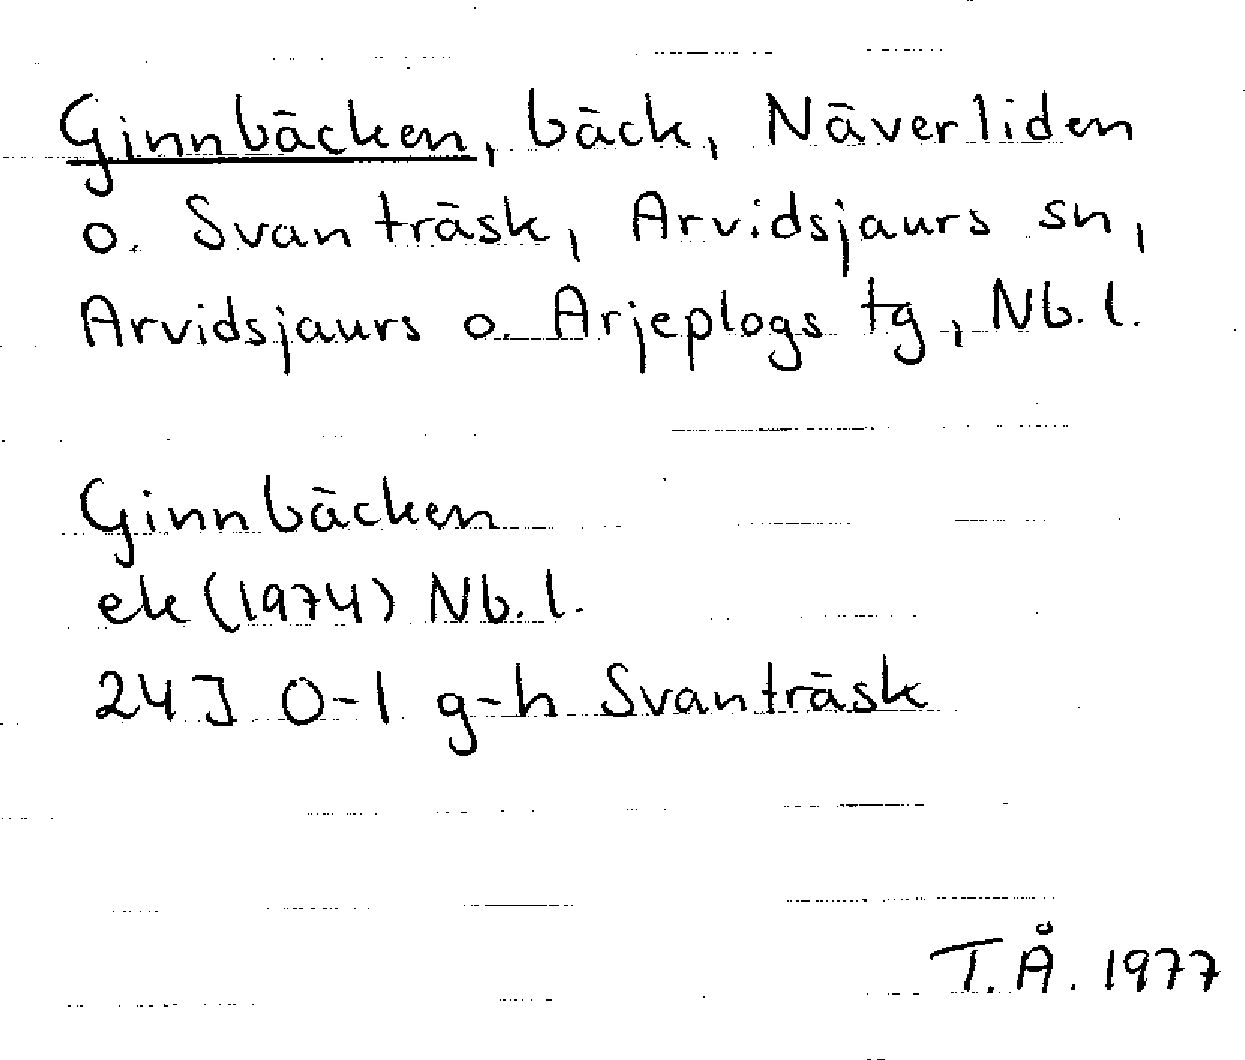 Ginnbäcken, bäck, Näverliden
o. Svanträsk, Arvidsjaurs sn,
Arvidsjaurs o. Arjeplogs tg, Nb. l.
Ginnbäcken
ek (1974) Nb. l.
24J 0-1 g-h Svanträsk
T.Å. 1977